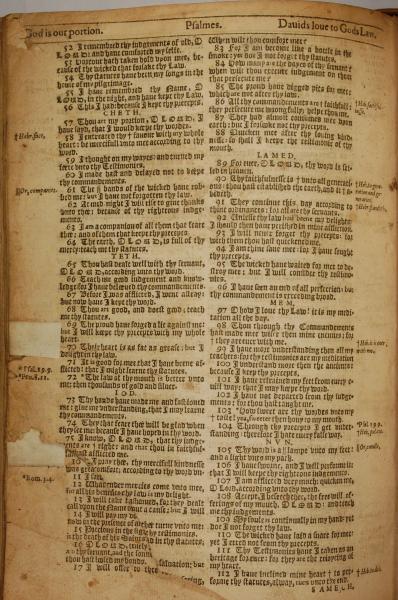 God is our portion.
Psalmes.
Dauids loue to Gods Law.
52 I remembred thy iudgements of old, O
LORD: and haue comforted my selfe.
53 Horrour hath taken hold vpon mee, be-
cause of the wicked that forsake thy Law.
54 Thy statutes haue bene my songs in the
house of my pilgrimage.
55 I haue remembred thy Name, O
LORD, in the night, and haue kept thy Law.
56 This I had: because I kept thy precepts.
CHETH.
57 Thou art my portion, O LORD, I
haue said, that I would keepe thy words.
58 I intreated thy fauour with my whole
heart: be mercifull vnto mee according to thy
word.
59 I thought on my wayes: and turned my
feete vnto thy Testimonies.
60 I made hast and delayed not to keepe
thy commandements.
61 The bands of the wicked haue rob-
bed me: but I haue not forgotten thy law.
62 At midnight I will rise to giue thanks
vnto thee: because of thy righteous iudge-
ments.
63 I am a companion of all them that feare
thee: and of them that keepe thy precepts.
64 The earth, O LORD, is full of thy
mercy: teach me thy statutes.
TETH.
65 Thou hast dealt well with thy seruant,
O LORD, according vnto thy word.
66 Teach me good iudgement and know-
ledge: for I haue beleeued thy commandements.
67 Before I was afflicted, I went astray:
but now haue I kept thy word.
68 Thou art good, and doest good; teach
me thy statutes.
69 The proud haue forged a lie against me:
but I will keepe thy precepts with my whole
heart.
70 Their heart is as fat as grease: but I
delight in thy law.
71 It is good for me that I haue bene af-
flicted: that I might learne thy statutes.
72 The law of thy mouth is better vnto
me: then thousands of gold and siluer.
IOD.
73 Thy hands haue made me and fashioned
me: giue me vnderstanding, that I may learne
thy commandements.
74 They that feare thee will be glad when
they see me: because I haue hoped in thy word.
75 I know, O LORD, that thy iudge-
ments are right: and that thou in faithful-
afflicted me.
pray thee, thy mercifull kindnesse
according to thy word
14 I will pay my
17 I will offer to thee
When wilt thou comfort me?
83 For I am become like a bottle in the
smoke: yet doe I not forget thy statutes.
84 How many are the dayes of thy seruant?
when wilt thou execute iudgement on those
that persecute me?
85 The proud haue digged pits for me:
which are not after thy law.
86 All thy commandements are faithfull:
they persecute me wrongfully; helpe thou me.
87 They had almost consumed mee vpon
earth: but I forsooke not thy precepts.
88 Quicken mee after thy louing kind-
nesse: so shall I keepe the testimonie of thy
mouth.
LAMED.
89 For euer, O LORD, thy word is set-
led in heauen.
90 Thy faithfulnesse is vnto all generati-
ons: thou hast established the earth, and it a-
bideth.
91 They continue this day according to
thine ordinances: for all are thy seruants.
92 Unlesse thy law had bene my delights:
I should then haue perished in mine affliction.
93 I will neuer forget thy precepts: for
with them thou hast quickened me.
94 I am thine, saue me: for I haue sought
thy precepts.
95 The wicked haue waited for mee to de-
stroy mee: but I will consider thy testimo-
nies.
96 I haue seene an end of all perfection: but
thy commandement is exceeding broad.
MEM.
97 O how I loue thy Law! it is my medi-
tation all the day.
98 Thou through thy Commandements
hast made mee wiser then mine enemies: for
they are euer with me.
99 I haue more vnderstanding then all my
teachers: for thy testimonies are my meditation
100 I vnderstand more then the ancients:
because I keepe thy precepts.
101 I haue refrained my feet from euery e-
uill way: that I may keepe thy word.
102 I haue not departed from thy iudge-
ments: for thou hast taught me.
103 How sweet are thy words vnto my
taste! yea, sweeter then hony to my mouth.
104 Through thy precepts I get vnder-
standing: therefore I hate euery false way.
NVN.
105 Thy word is a lampe vnto my feet:
and a light vnto my path.
106 I haue sworne, and I will performe it:
that I will keepe thy righteous iudgements.
107 I am afflicted very much: quicken me,
O Lord, according vnto thy word.
108 Accept, I beseech thee, the free will of-
ferings of my mouth, O LORD: and teach
me thy iudgements.
109 My soule is continually in my hand: yet
doe I not forget thy law.
110 The wicked haue laid a snare for me:
yet I erred not from thy precepts.
111 Thy Testimonies haue I taken as an
heritage for euer: for they are the reioycing of
my heart.
112 I haue inclined mine heart to per-
forme thy statutes, alway, euen vnto the end.
SAMECH.